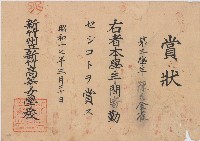 賞狀
第三學年
右者本學年間
勤
セシコトヲ賞ス
昭和十七年三月
新竹州立新竹高等女學校